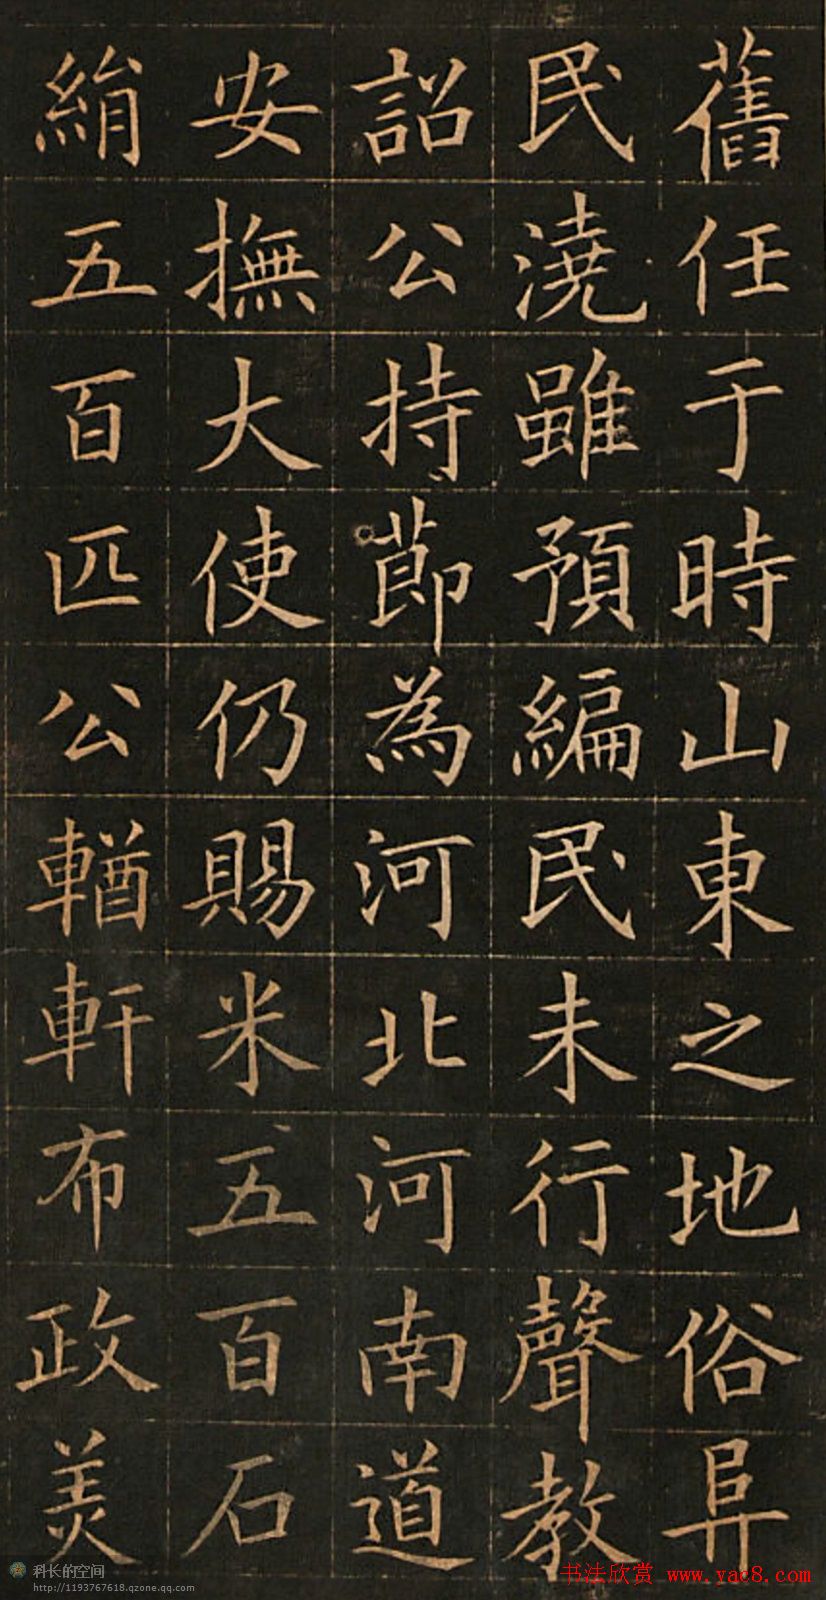 舊任于時山東之地俗阜
民澆雖預編民未行聲教
詔公持節為河北河南道
安撫大使仍賜米五百石
絹五百匹公輶軒布政美
科长的空间
http://1193767618.qzone.qq.com
书法欣赏 www.yac8.com